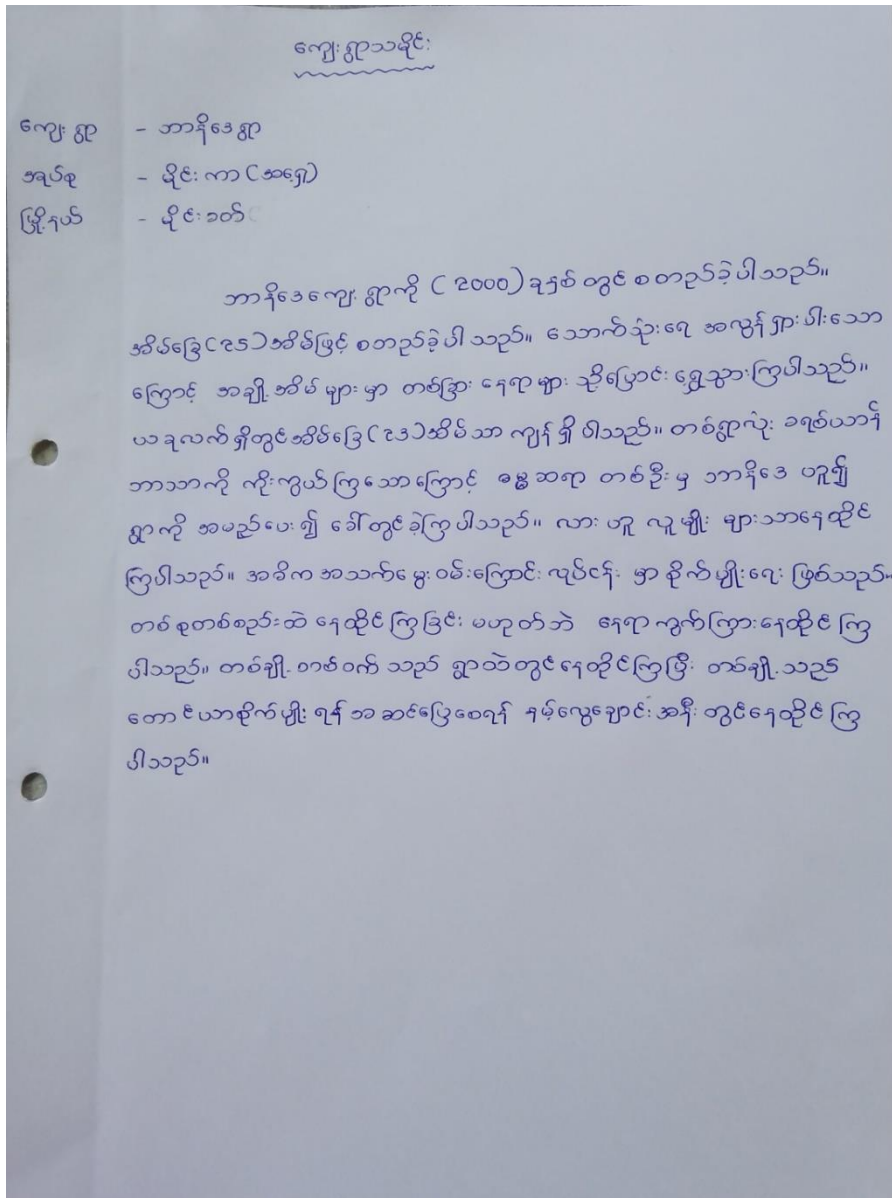 ကျေးရွာသမိုင်း
ကျေးရွာ - ဘာနိဒေရွာ
အုပ်စု - မိုင်းကာ (အရှေ့)
မြို့နယ် - မိုင်းခတ်
ဘာနိဒေကျေးရွာကို (၁၉၀၀) ခုနှစ်တွင် စတည်ခဲ့ပါသည်။
အိမ်ခြေ (၃၅) အိမ်ဖြင့် စတည်ခဲ့ပါသည်။ သောက်သုံးရေ အလွန်ရှားပါးသော
ကြောင့် အချို့အိမ်များမှာ တစ်ခြားနေရာများ သို့ပြောင်းရွှေ့သွားကြပါသည်။
ယခုလက်ရှိတွင်အိမ်ခြေ (၂၃) အိမ်သာ ကျန်ရှိပါသည်။ တစ်ရွာလုံး ခရစ်ယာန်
ဘာသာကို ကိုးကွယ်ကြသောကြောင့် ဓမ္မဆရာ တစ်ဦးမှ ဘာနိဒေ ဟူ၍
ရွာကို အမည်ပေး၍ ခေါ်တွင်ခဲ့ကြပါသည်။ လားဟူ လူမျိုးများသာနေထိုင်
ကြပါသည်။ အဓိက အသက်မွေးဝမ်းကြောင်း လုပ်ငန်းမှာ စိုက်မျိုးရေး ဖြစ်သည်။
တစ်စုတစ်စည်းထဲ နေထိုင်ကြခြင်း မဟုတ်ဘဲ နေရာကွက်ကြားနေထိုင်ကြ
ပါသည်။ တစ်ချို့တစ်ဝက်သည် ရွာထဲတွင်နေထိုင်ကြပြီး တစ်ချို့သည်
တောင်ယာစိုက်မျိုးရန် အဆင်ပြေစေရန် နမ့်လွေချောင်းအနီးတွင်နေထိုင်ကြ
ပါသည်။